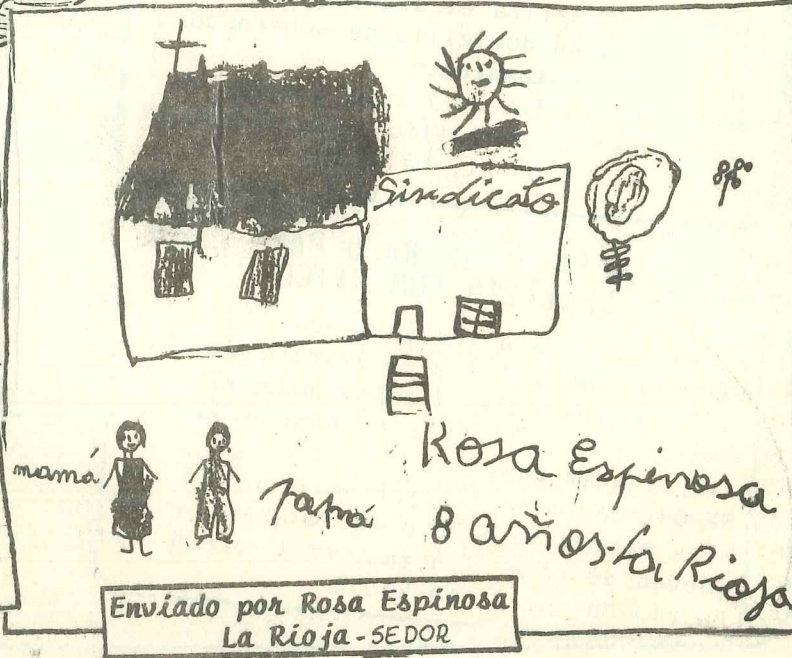 Sindicato
mamá
papá
Rosa Espinosa
8 años-La Rioja
Enviado por Rosa Espinosa
La Rioja-SEDOR